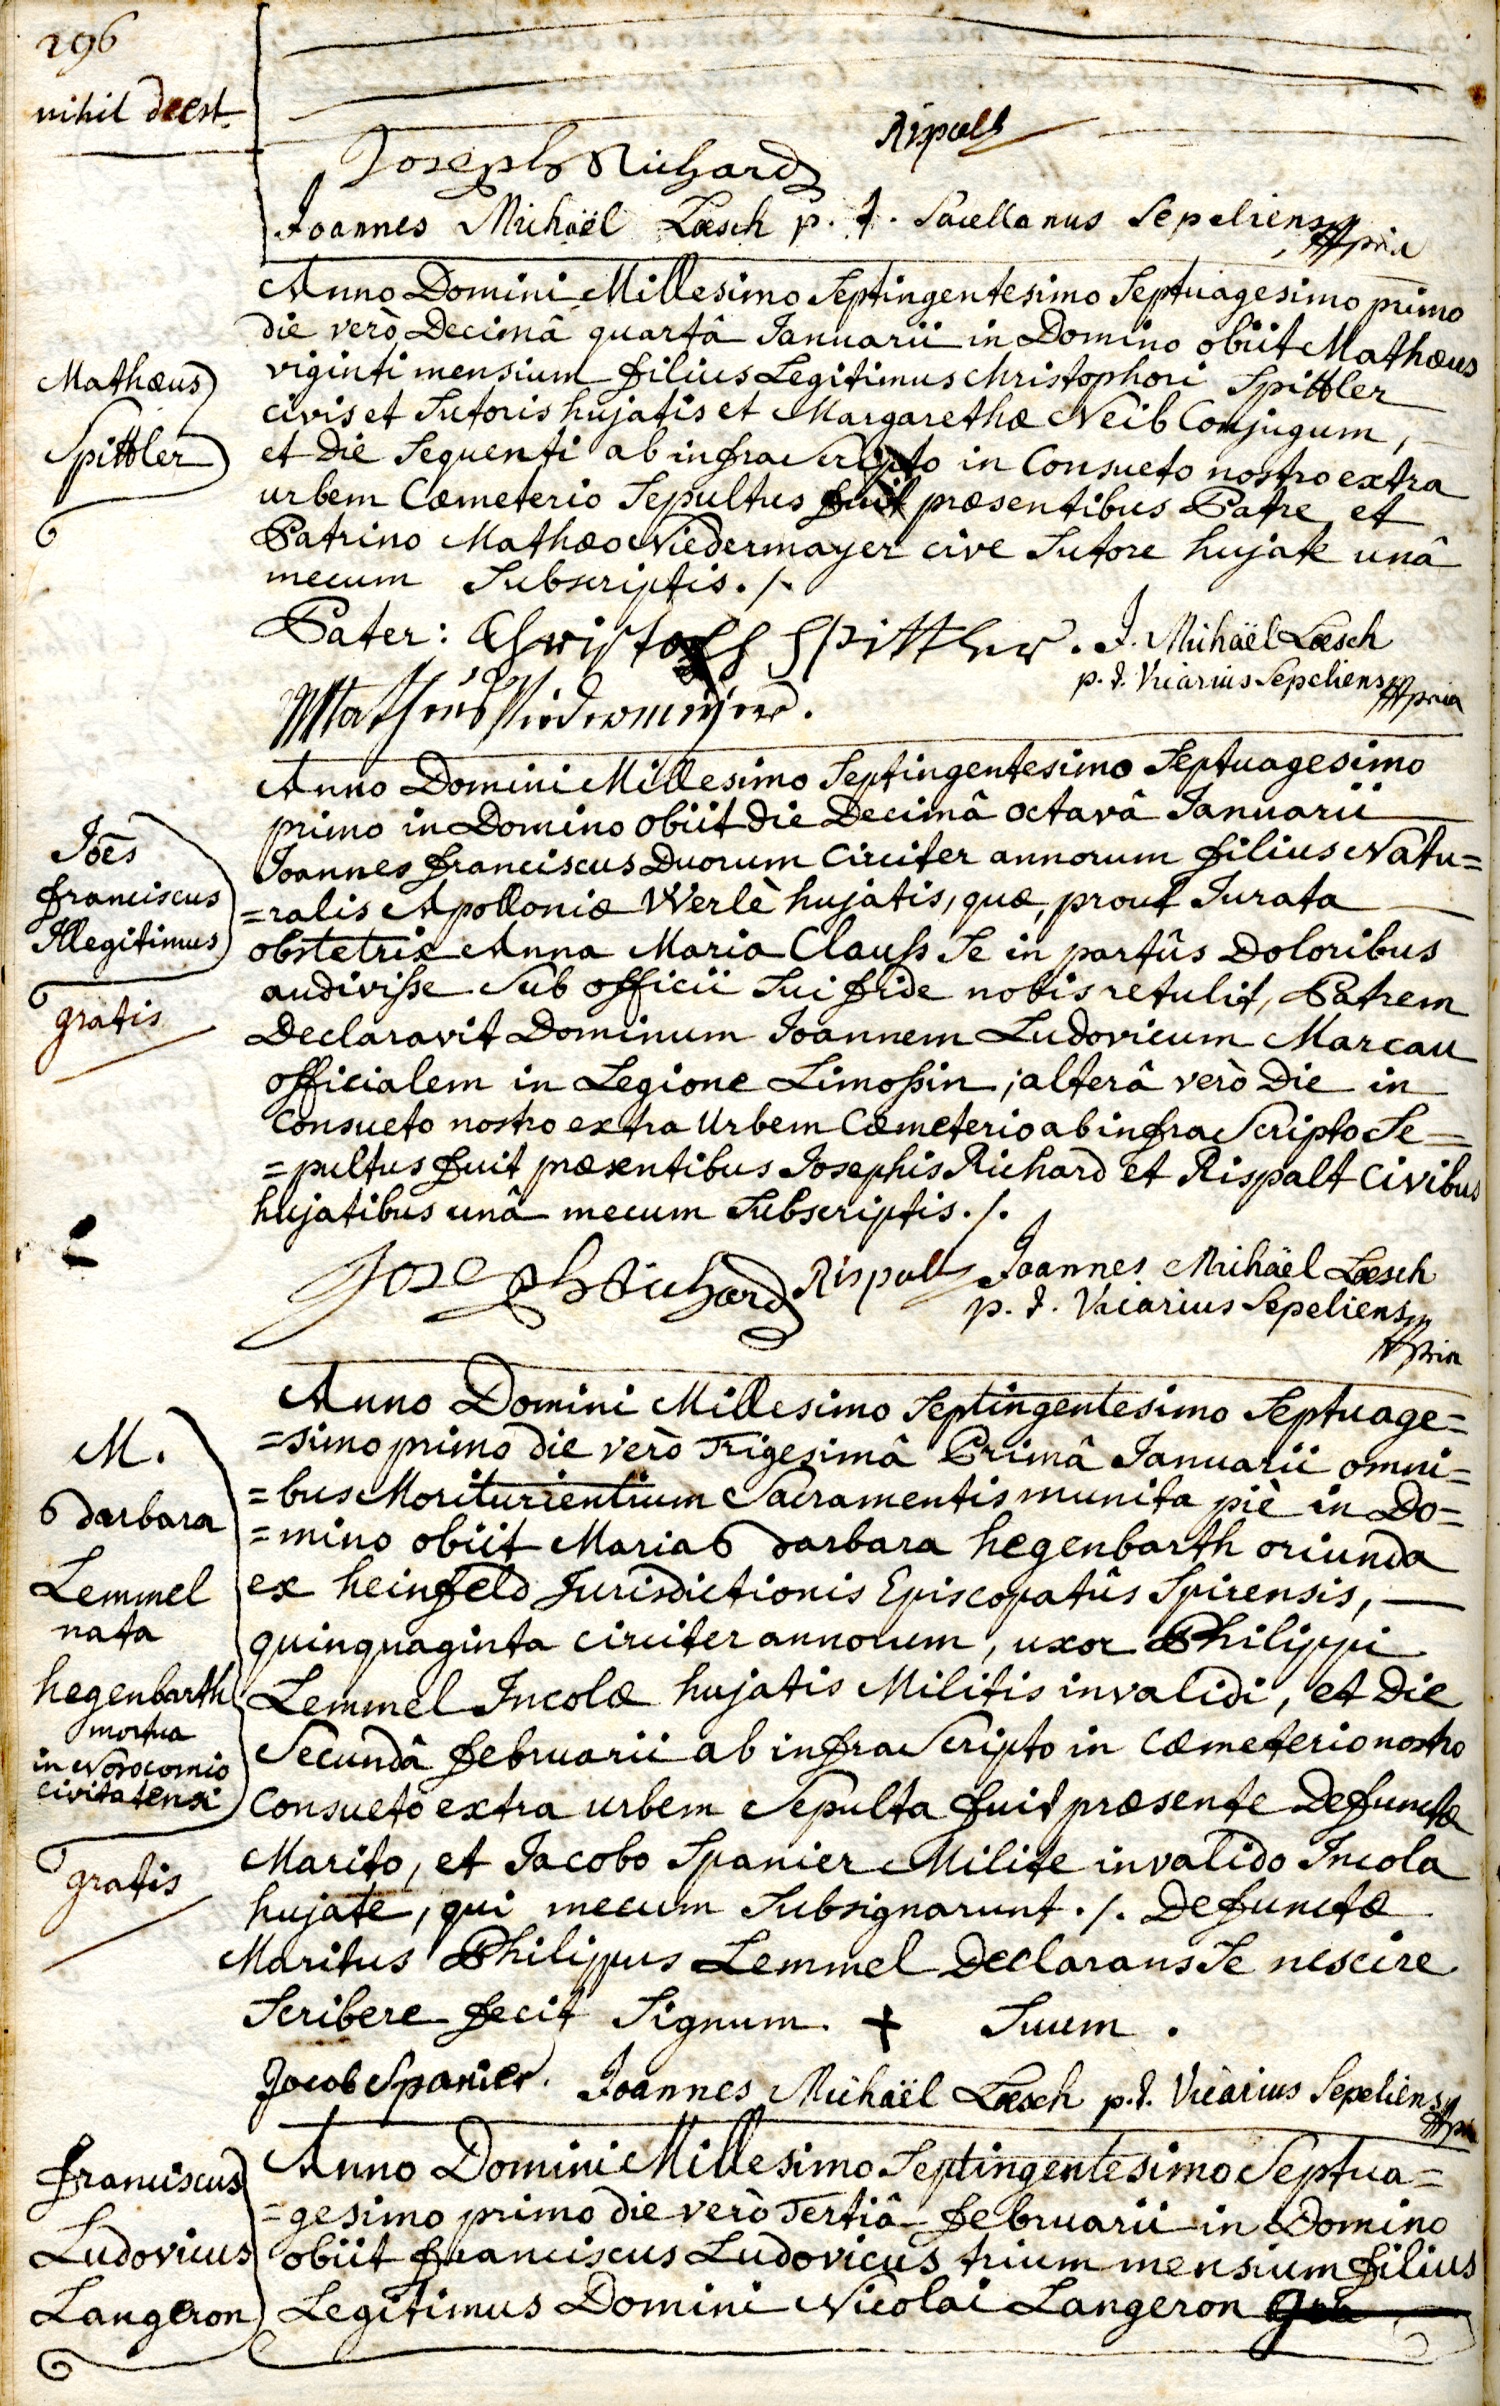 296
nihil deest.
Rispalt
Joseph Richard
Joannes Michaël Loesch p. t. Sacellanus Sepeliens mppria
Anno Domini Millesimo Septingentesimo Septuagesimo primo
die verò Decimâ quartâ Januarii in Domino obiit Mathæus
Mathæus
Spittler
viginti mensium filius Legitimus Christophori Spittler
civis et Sutoris hujatis et Margarethæ Neib Conjugum,
et die Sequenti ab infraScripto in Consueto nostro extra
urbem Cœmeterio Sepultus fuit præsentibus Patre et
Patrino Mathæo Niedermayer cive Sutore hujate unâ
mecum Subscriptis ./.
Pater: Christoph Spittler. J. Michaël Loesch
p. t. Vicarius Sepeliens mppria
Matheus Nidermeyer.
Anno Domini Millesimo Septingentesimo Septuagesimo
primo in Domino obiit die Decimâ octavâ Januarii
Joës
franciscus
Illegitimus
gratis
Joannes franciscus Duorum Circiter annorum filius Natu=
=ralis Apolloniæ Werlè hujatis, quæ, prout Jurata
obstetrix Anna Maria Clauss Se in partûs Doloribus
audivisse Sub officii Sui fide nobis retulit, Patrem
Declaravit Dominum Joannem Ludovicum Marcau
officialem in Legione Limossin; alterâ verò Die in
Consueto nostro extra Urbem Cœmeterio ab infraScripto Se=
=pultus fuit præsentibus Josephis Richard et Rispalt Civibus
hujatibus unâ mecum Subscriptis ./.
Joseph Richard Rispalt Joannes Michaël Loesch
p. t. Vicarius Sepeliens
mppria
Anno Domini Millesimo Septingentesimo Septuage=
=simo primo die verò Trigesimâ Primâ Januarii omni=
M.
Barbara
Lemmel
nata
hegenbarth
mortua
in Nosocomio
civitatensi
gratis
=bus Moriturientium Sacramentis munita piè in Do=
=mino obiit Maria Barbara hegenbarth oriunda
ex heinfeld Jurisdictionis Episcopatûs Spirensis,
quinquaginta circiter annorum, uxor Philippi
Lemmel Incolæ hujatis Militis invalidi, et die
Secundâ februarii ab infraScripto in Cœmeterio nostro
Consueto extra urbem Sepulta fuit præsente Defunctæ
Marito, et Jacobo Spanier Milite invalido Incola
hujate, qui mecum Subsignarunt ./. Defunctæ
Maritus Philippus Lemmel Declarans Se nescire
Scribere fecit Signum. + Suum.
Jacob Spanier. Joannes Michaël Loesch p. t. Vicarius Sepeliens mppria
franciscus
Ludovicus
Langeron
Anno Domini Millesimo Septingentesimo Septua=
=gesimo primo die verò Tertiâ februarii in Domino
obiit franciscus Ludovicus trium mensium filius
Legitimus Domini Nicolai Langeron